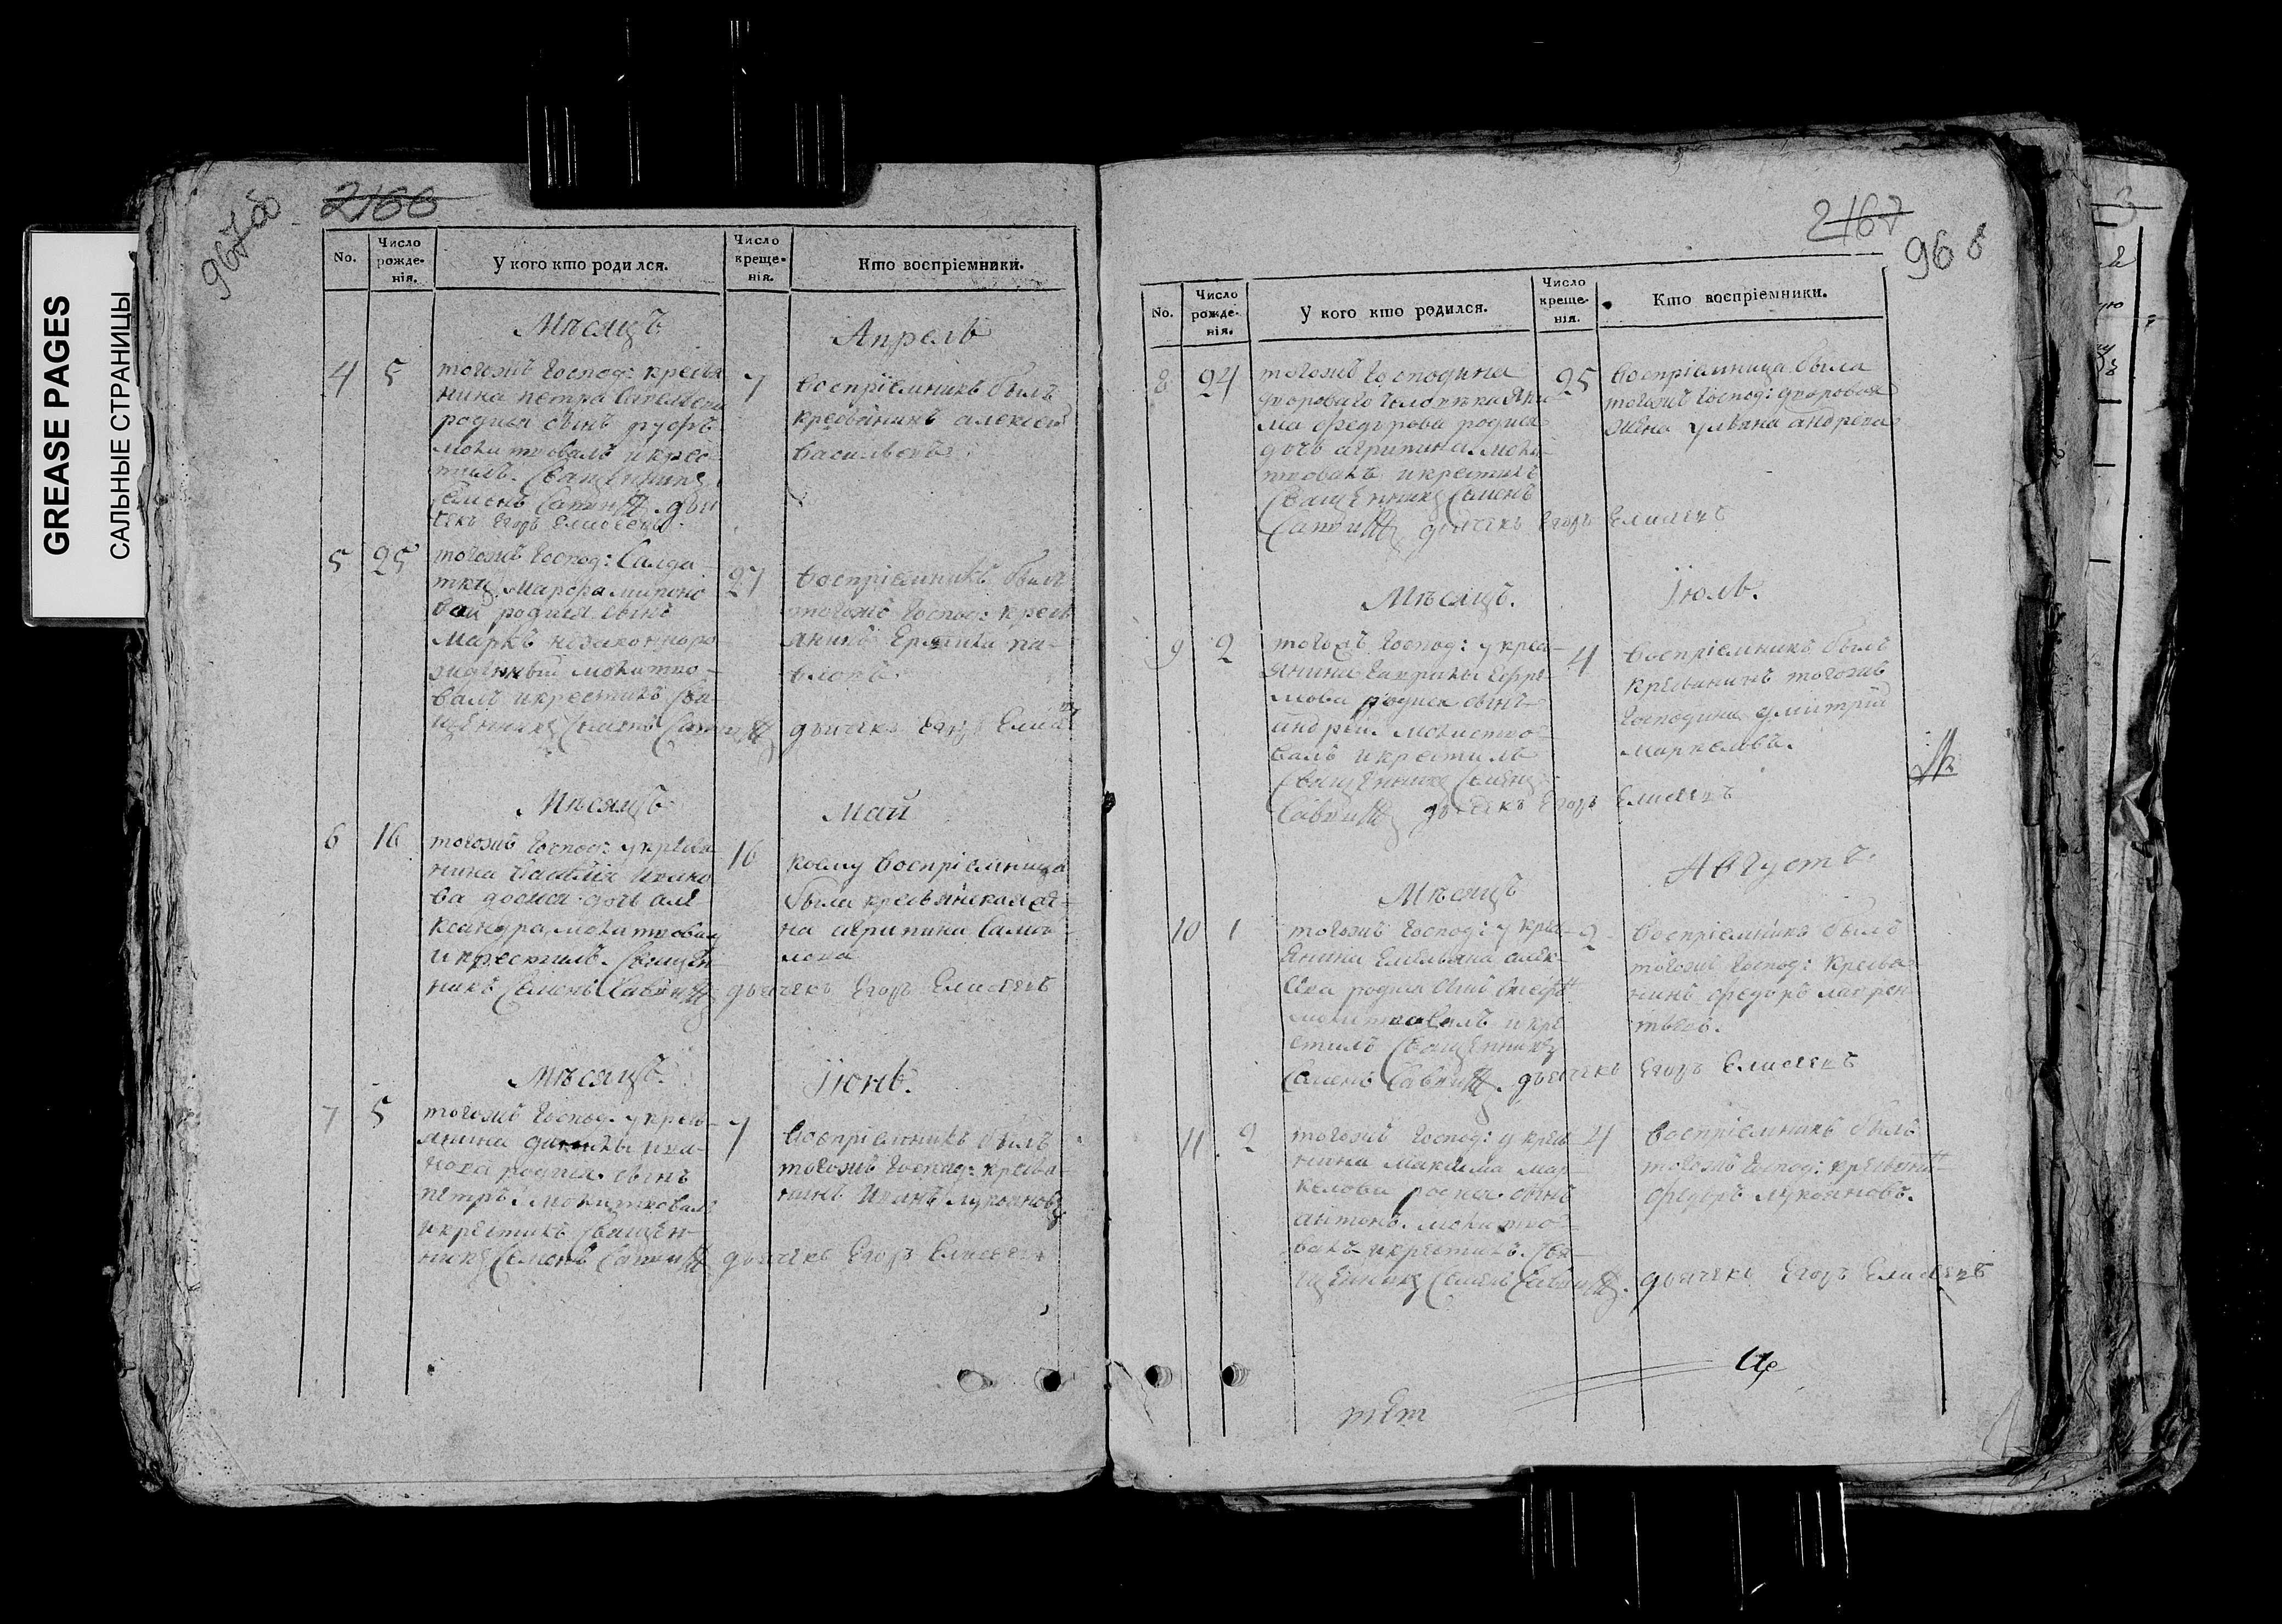 GREASE PAGES
САЛЬНЫЕ СТРАНИЦЫ
967об
2166
No.
Число рожде-нія.
У кого кто родился.
Число креще-нія.
Кто воспріемники.
Мѣсяцъ
Апрель
4 5
тогожъ Господ: кресья
нина петра Савельева
родился сынъ руфъ
молитвовалъ и крес-
тилъ. Священникъ
Семенъ дья
чекъ Егоръ Елисеевъ.
7
воспріемникъ былъ
кресьянинъ алексей
васильевъ
5 25
тогожъ Господ: Салда-
тки Марфы мироно
вой родился сынъ
Маркъ незаконноро
жденный молитво-
валъ и крестилъ Свя-
щенникъ Семенъ
27
воспріемникъ былъ
тогожъ Господ: кресь
янинъ Ермила па-
вловъ.
дьячекъ Егоръ
Мѣсяцъ
Май
6 16
тогожъ Господ: у кресья
нина Василія Ивано
ва дочь але
ксандра, молитвовалъ
и крестилъ. Священ
никъ Семенъ
16
коему воспріемница
была кресьянская же-
на агрипина Самой-
лова
дьячекъ Егоръ Елисеевъ
Мѣсяцъ.
Іюнь.
7 5
тогожъ Господ. у кресь-
янина данилы ива-
нова родился сынъ
петръ. молитвовалъ
и крестилъ священ-
никъ Семенъ
7
воспріемникъ былъ
тогожъ Господ: кресья-
нинъ Иванъ лукояновъ
дьячекъ Егоръ Елисеевъ
2167
968
No.
Число рожде-нія.
У кого кто родился.
Число креще-нія.
Кто воспріемники.
8 24
тогожъ Господина
двороваго человека
ма федорова родилась
дочь агрипина. моли-
твовалъ и крестилъ
Священникъ Семенъ
дьячекъ Егоръ Елисеевъ
25
воспріемница была
тогожъ Господ: дворовая
жена ульяна андреева
Мѣсяцъ.
Іюль.
9 2
тогожъ Господ: у кресь-
янина Гаврилы Ефре-
мова родился сынъ
андрей. молитво-
валъ и крестилъ
Священникъ Семенъ
дьячекъ Егоръ Елисеевъ
4
воспріемникъ былъ
кресьянинъ тогожъ
Господина дмитрій
маркеловъ.
Мѣсяцъ
Августъ.
10 1
тогожъ Господ: у кресь-
янина Емельяна алек-
сева родился сынъ
молитвовалъ и кре
стилъ Священникъ
Семенъ дьячекъ Егоръ Елисеевъ
2
воспріемникъ былъ
тогожъ Господ: кресья
нинъ федоръ лаврен
тьевъ.
11 2
тогожъ Господ: у кресья
нина Максима мар-
келова родился сынъ
антонъ. молитво-
валъ и крестилъ. Свя-
щенникъ Семенъ
4
воспріемникъ былъ
тогожъ Господ: кресьянинъ
федоръ лукояновъ.
дьячекъ Егоръ Елисеевъ